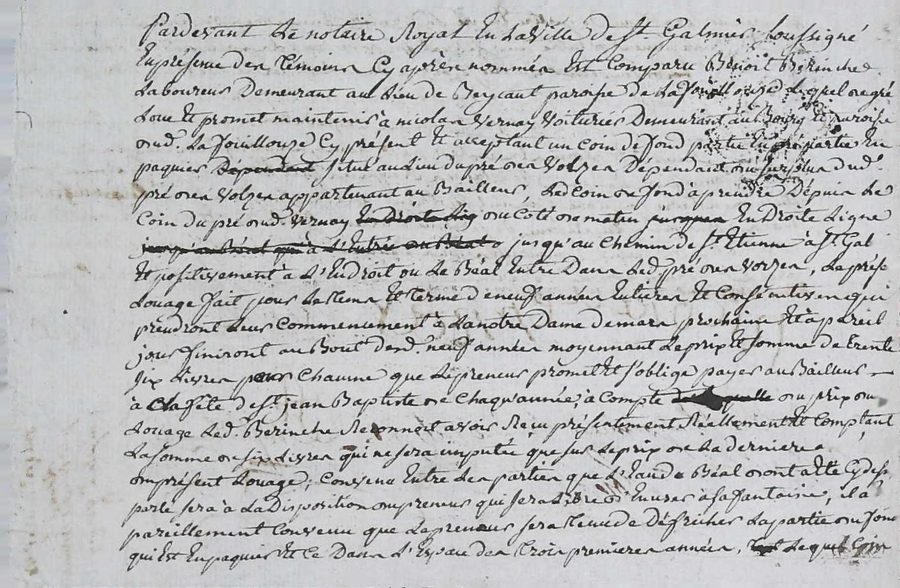 Pardevant Le notaire Royal En La Ville de St. Galmier soussigné
En présence des témoins Cy après nommés Est Comparu Benoit Berinche
Laboureur Demeurant au Lieu de paroisse de La fouillouse Lequel de gré
Loue Et promet maintenir à nicolas Vernay Voiturier Demeurant au Bourg Et paroisse
dud. La fouillouse Cy présent Et acceptant un Coin de fond partie En pré partie En
paquier Dependant situé au Lieu du pré des Volzes Dépendant du surplus dud.
pré des Volzes appartenant au Bailleur, Led Coin de fond à prendre Depuis Le
Coin du pré dud. Vernay du Côté de matin jusques En Droite Ligne
jusqu'au Chemin de St. Etienne à St. Gal
Et positivement à L'Endroit ou Le Béal Entre Dans Led. pré des Volzes, Le prést
Louage fait pour Le tems Et terme de neuf années Entieres Et Consécutives qui
prendront Leur Commencement à La notre Dame de mars prochaine Et à pareil
jour finiront au Bout desd. neuf années moyennant Le prix Et somme de trente
six Livres pour Chacune que Le preneur promet Et s'oblige payer au Bailleur
à La fête de St. jean Baptiste de Chaqu'année, à Compte du prix du
Louage Led. Berinche Reconnoit avoir Reçu présentement Réellement Et Comptant
La somme de six Livres qui ne sera imputée que sur Le prix de La derniere
du présent Louage; Convenu Entre Les parties que L'Eau du Béal dont a Eté Cy dess
parlé sera à La Disposition du preneur qui sera Libre d'En user à sa fantaisie, il à
pareillement Convenu que Le preneur sera tenu de défricher La partie du fond
qui Est En paquier Et ce Dans L'Espace des trois premieres années, Lequel Coin